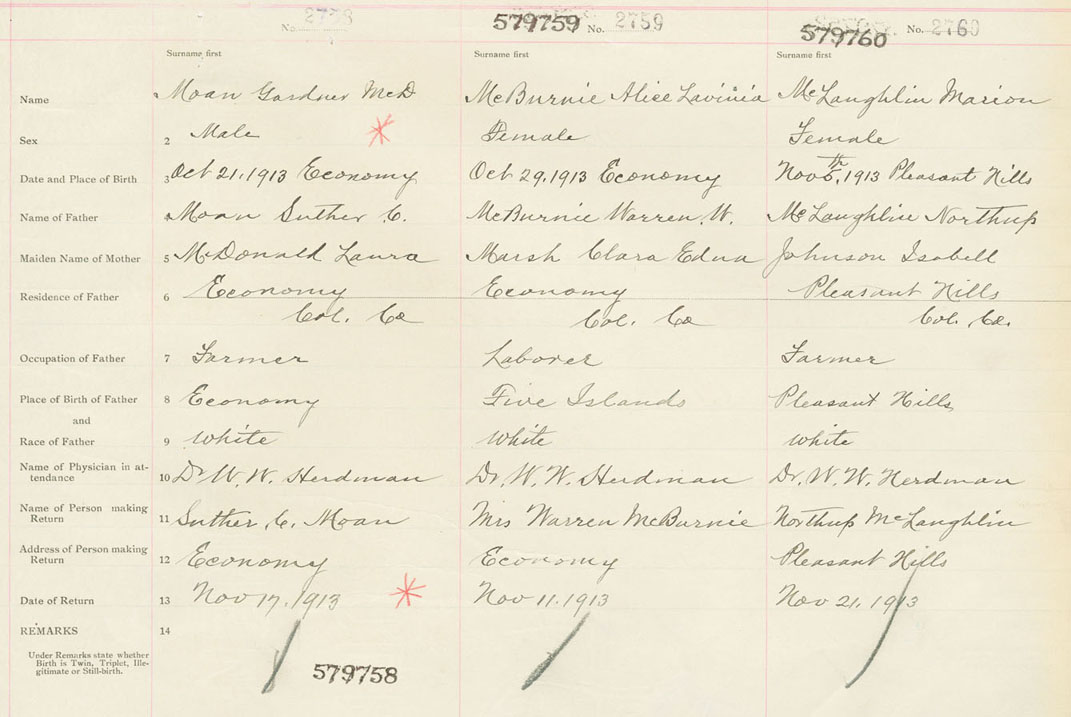 No. 2758 579759 No. 2759 579760 No. 2760
Surname first Surname first Surname first
Name Moan Gardner McD McBurnie Alice Lavinia McLaughlin Marion
Sex 2 Male Female Female
Date and Place of Birth 3 Oct 21, 1913 Economy Oct 29, 1913 Economy Nov 5th, 1913 Pleasant Hills
Name of Father 4 Moan Suther C. McBurnie Warren W. McLaughlin Northup
Maiden Name of Mother 5 McDonald Laura Marsh Clara Edna Johnson Isabell
Residence of Father 6 Economy Economy Pleasant Hills
Col. Co Col. Co Col. Co.
Occupation of Father 7 Farmer Laborer Farmer
Place of Birth of Father 8 Economy Five Islands Pleasant Hills
and
Race of Father 9 White White White
Name of Physician in at-
tendance 10 Dr W. W. Herdman Dr. W. W. Herdman Dr. W. W. Herdman
Name of Person making
Return 11 Suther, C. Moan Mrs Warren McBurnie Northup McLaughlin
Address of Person making
Return 12 Economy Economy Pleasant Hills
Date of Return 13 Nov 17, 1913 Nov 11, 1913 Nov 21, 1913
REMARKS 14
Under Remarks state whether
Birth is Twin, Triplet, Ille-
gitimate or Still-birth.
579758